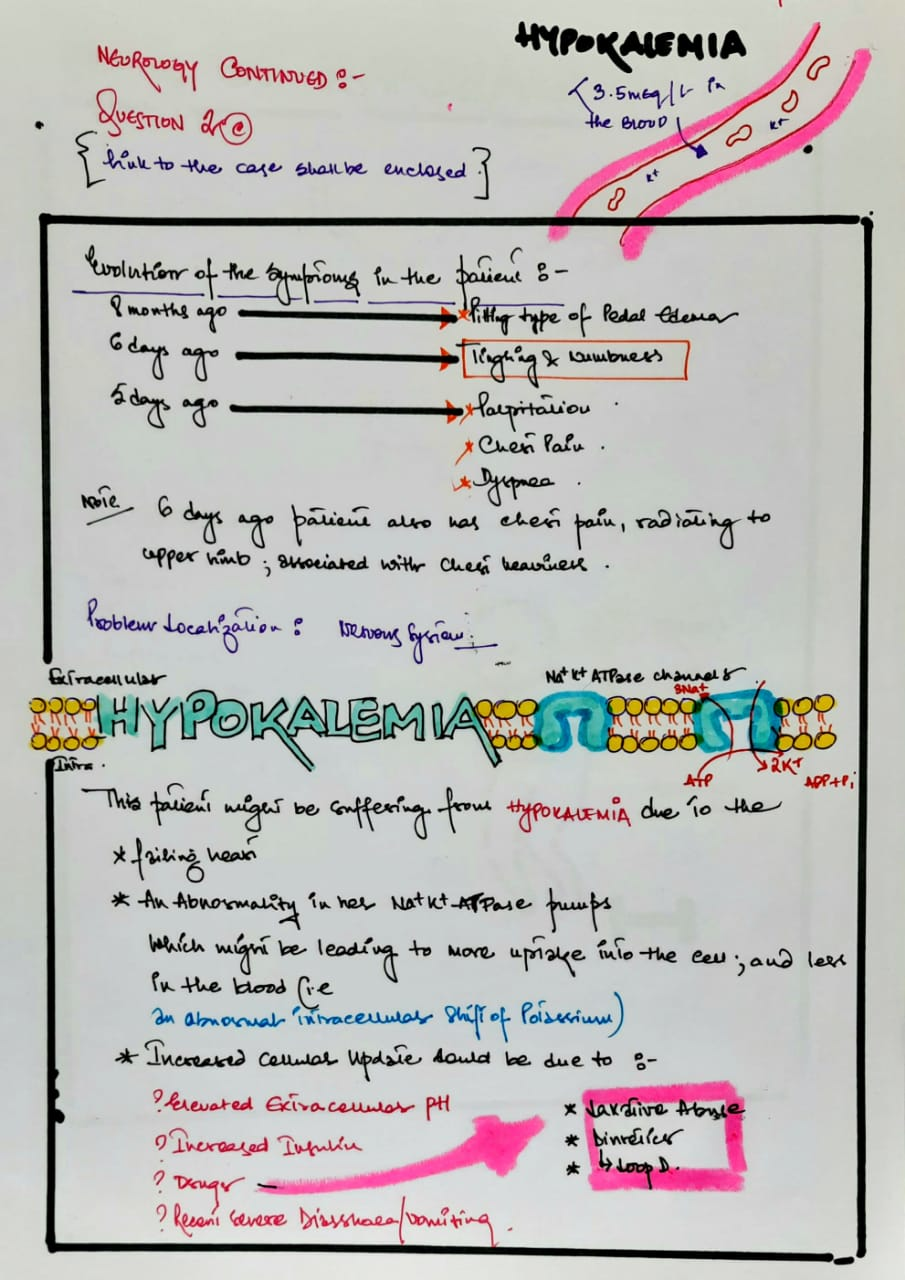 HYPOKALEMIA
NEUROLOGY CONTINUED :-
<3.5meq/L in
the BLOOD
QUESTION 2 (c)
[Link to the case shall be enclosed.]
K+
K+
Evolution of the symptoms in the patient :-
8 months ago * Pitting type of Pedal Edema
6 days ago Tingling & Numbness
5 days ago * Palpitation .
* Chest Pain .
* Dyspnea .
Note 6 days ago patient also has chest pain, radiating to
upper limb ; associated with chest heaviness .
Problem Localization : Nervous System.
Extracellular
Na+K+ ATPase channels
3Na+
HYPOKALEMIA
Intra.
ATP
2K+
ADP+Pi
This patient might be suffering from HYPOKALEMIA due to the
* failing heart
* An Abnormality in her Na+K+-ATPase pumps
which might be leading to more uptake into the cell ; and less
in the blood (i.e
an abnormal intracellular shift of Potassium)
* Increased cellular Update could be due to :-
? Elevated Extracellular pH
? Increased Insulin
? Drugs
? Recent severe Diarrhoea/Vomiting.
* Laxative Abuse
* Diuretics
* ↳ Loop D.